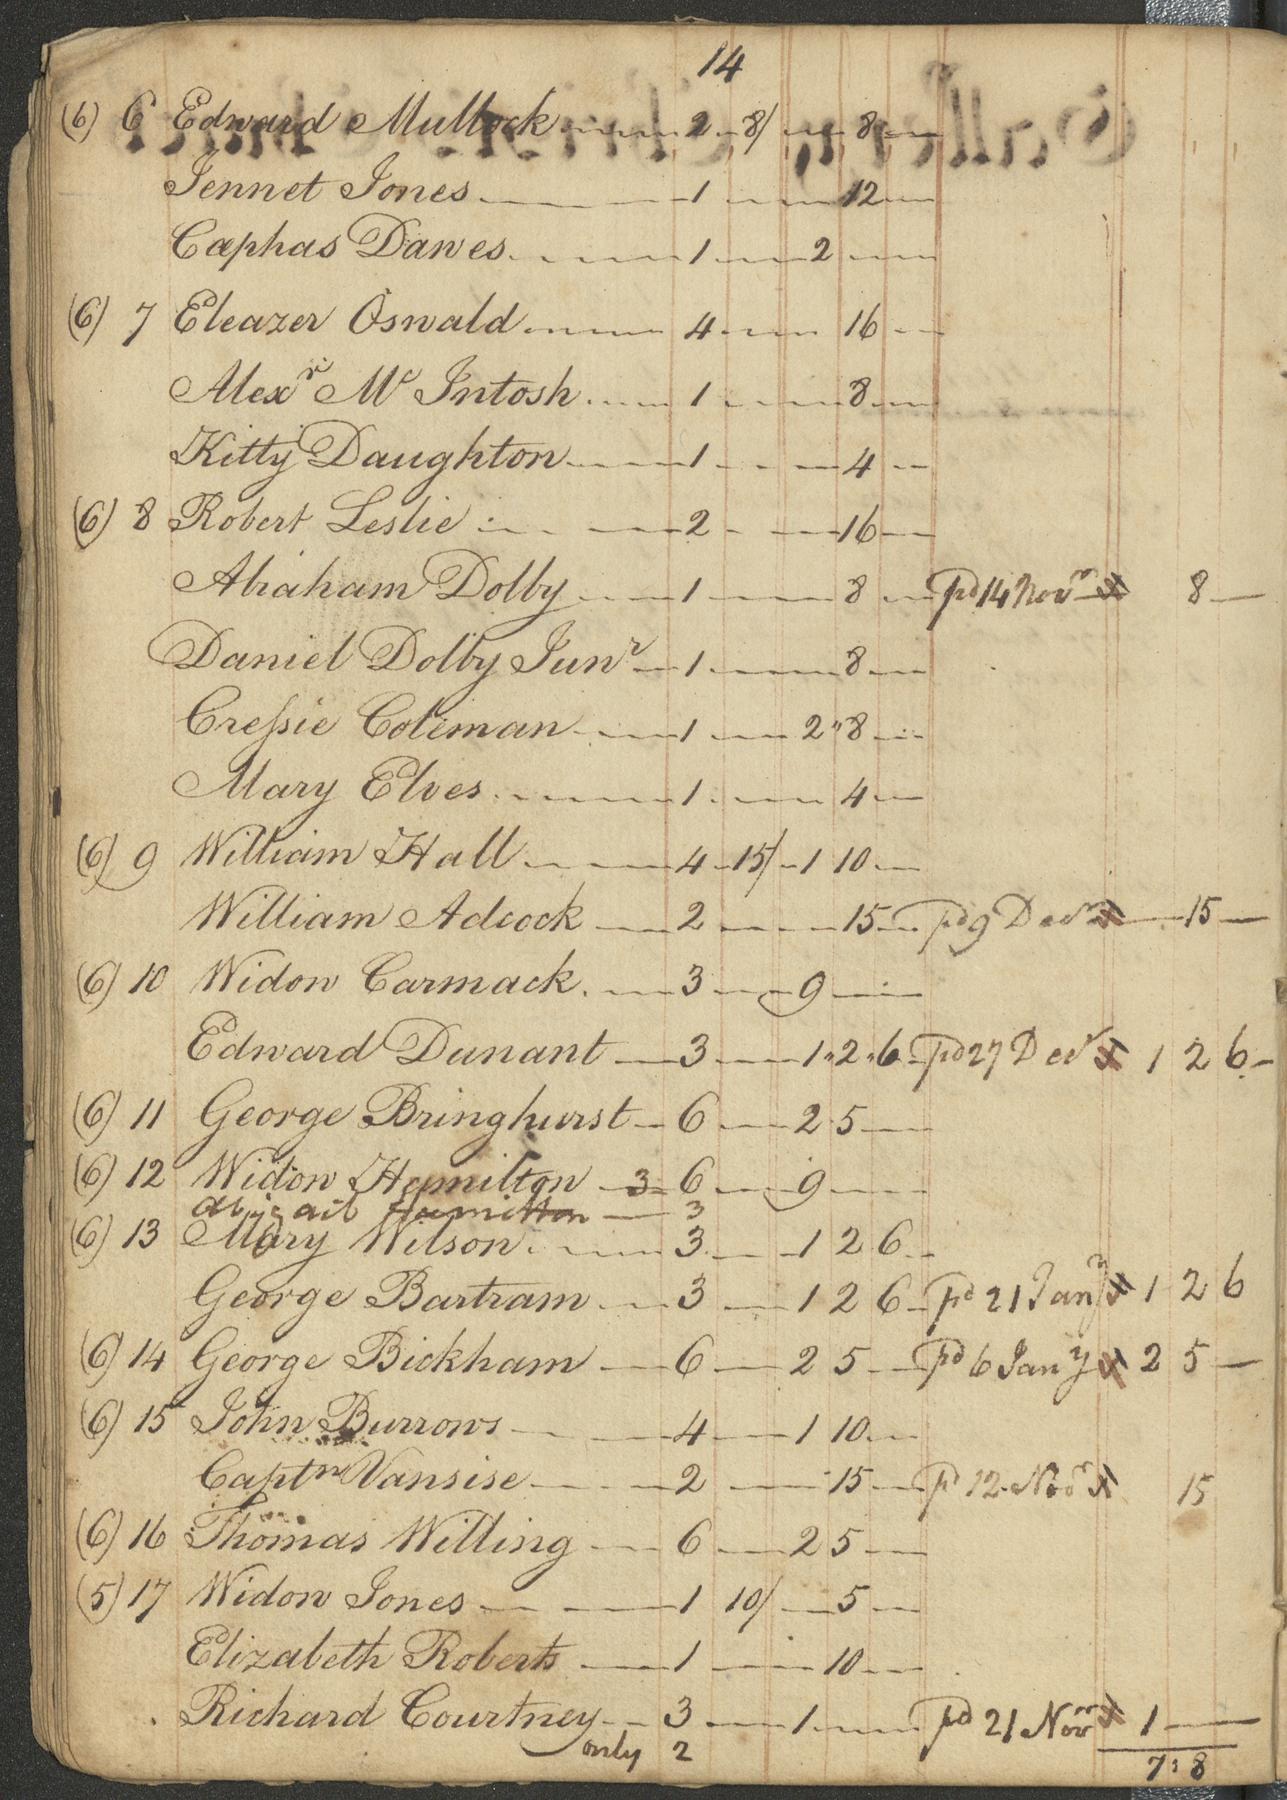 14
(6) 6 Edward Mullock 2 8/ 8
Jennet Jones 1 12
Cæphas Dawes 1 2
(6) 7 Eleazer Oswald 4 16
Alexr Mc Intosh 1 8
Kitty Daughton 1 4
(6) 8 Robert Leslie 2 16
Abraham Dolby 1 8 pd 14 Novr 8
Daniel Dolby Junr 1 8
Creſsie Coleman 1 2 " 8
Mary Elves 1 4
(6) 9 William Hall 4 15/ 1 10
William Adcock 2 15 pd 9 Decr 15
(6) 10 Widow Carmack 3 9
Edward Dunant 3 1 " 2 " 6 pd 27 Decr 1 2 6
(6) 11 George Bringhurst 6 2 5
(6) 12 Widow Hamilton 3 6 9
Abigail Hamilton 3
(6) 13 Mary Wilson 3 1 2 6
George Bartram 3 1 2 6 pd 21 Jany 1 2 6
(6) 14 George Bickham 6 2 5 pd 6 Jany 2 5
(6) 15 John Burrows 4 1 10
Captn Vansise 2 15 pd 12 Novr 15
(6) 16 Thomas Willing 6 2 5
(5) 17 Widow Jones 1 10/ 5
Elizabeth Roberts 1 10
Richard Courtney 3 1 pd 21 Novr 1
only 2 7 : 8